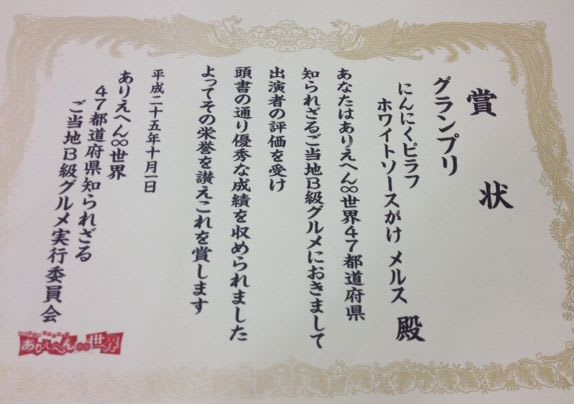 賞状
グランプリ
にんにくピラフ
ホワイトソースがけ メルス 殿
あなたはありえへん∞世界47都道府県
知られざるご当地B級グルメにおきまして
出演者の評価を受け
頭書の通り優秀な成績を収められました
よってその栄誉を讃えこれを賞します
平成二十五年十月一日
ありえへん∞世界
47都道府県知られざる
ご当地B級グルメ実行委員会
ありえへん∞世界